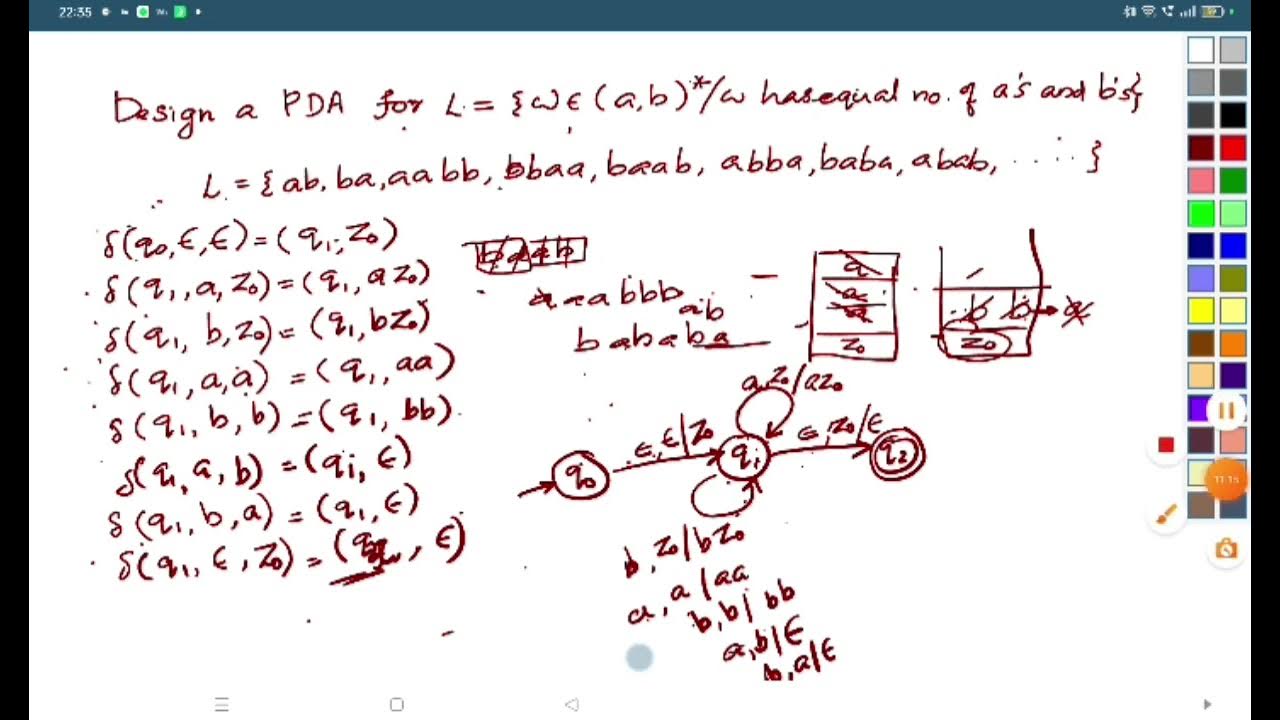 22:35
Design a PDA for L = {ω ϵ (a,b)*/ω has equal no. of a's and b's}
L = {ab, ba, aabb, bbaa, baab, abba, baba, abab, ......}
δ(q0, ϵ, ϵ) = (q1, Z0)
δ(q1, a, Z0) = (q1, aZ0)
δ(q1, b, Z0) = (q1, bZ0)
δ(q1, a, a) = (q1, aa)
δ(q1, b, b) = (q1, bb)
δ(q1, a, b) = (q1, ϵ)
δ(q1, b, a) = (q1, ϵ)
δ(q1, ϵ, Z0) = ( , ϵ)
baab
aaabbb
ab
bababa
a
a
a
Z0
b b → a
Z0
a, Z0/aZ0
q0
ϵ, ϵ/Z0
q1
ϵ, Z0/ϵ
q2
b, Z0/bZ0
a, a/aa
b, b/bb
a, b/ϵ
b, a/ϵ
11:15